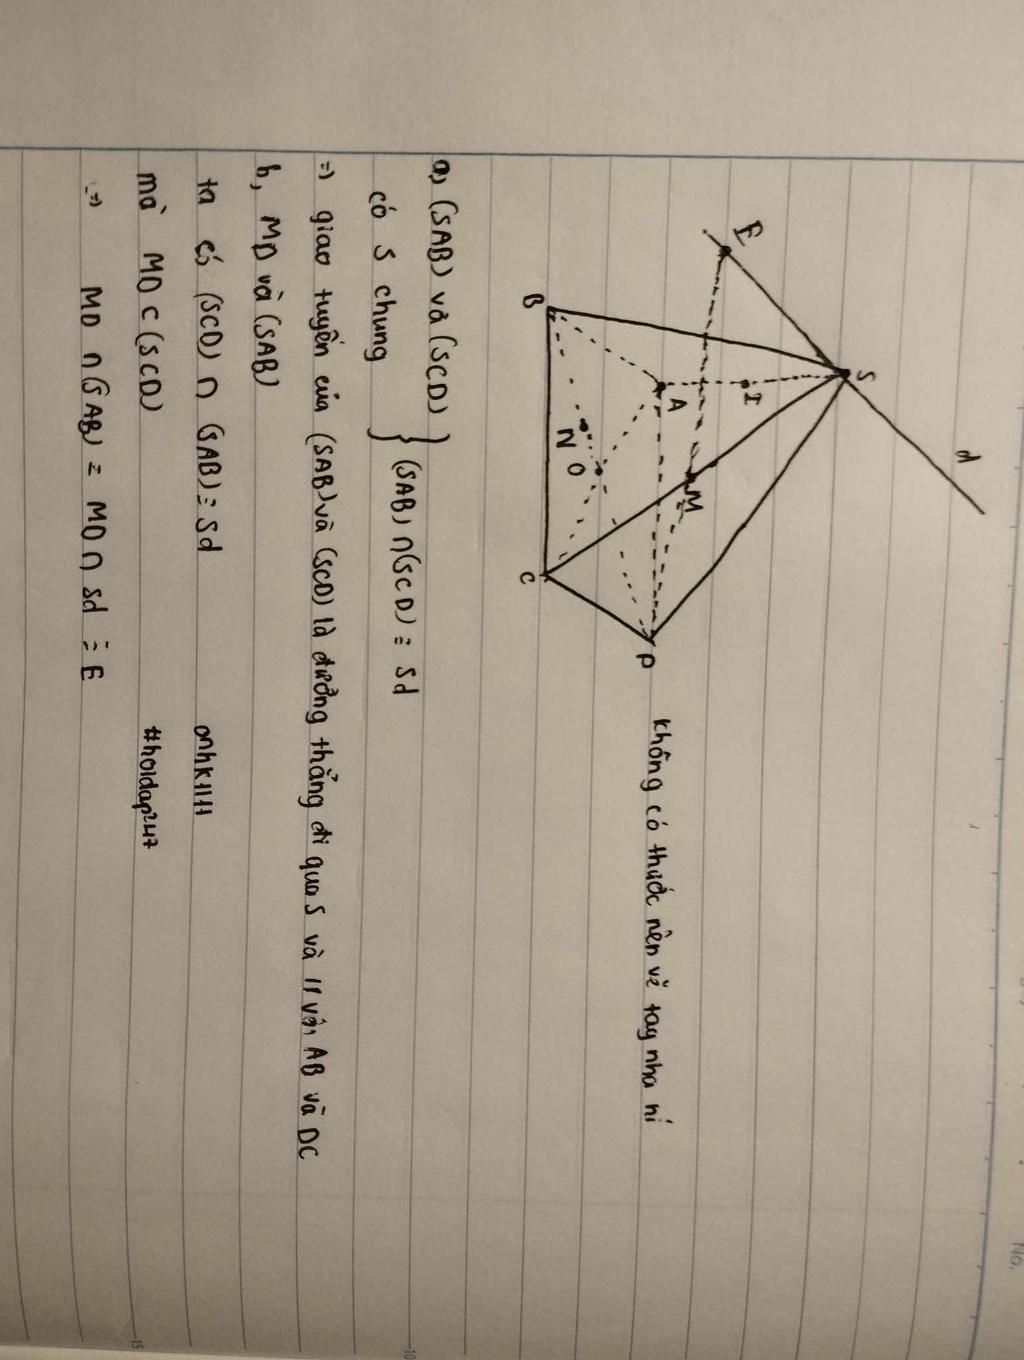 No.
d
S
E
I
M
A
B
N
O
C
D
không có thước nên vẽ tay nha ní
a, (SAB) và (SCD)
có S chung } (SAB) ∩ (SCD) = Sd
=) giao tuyến của (SAB) và (SCD) là đường thẳng đi qua S và // với AB và DC
b, MD và (SAB)
ta có (SCD) ∩ (SAB) = Sd
onhk1111
mà MD ⊂ (SCD)
#hoidap247
=) MD ∩ (SAB) = MD ∩ Sd = E
10
15